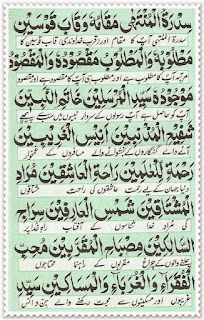 سِدْرَةُ الْمُنْتَهٰى مَقَامُهٗ وَقَابَ قَوْسَيْنِ
سدرۃ المنتہیٰ آپ کا مقام اور (قرب خداوندی) قاب قوسین کا
مَطْلُوْبُهٗ وَالْمَطْلُوْبُ مَقْصُوْدُهٗ وَالْمَقْصُوْدُ
مرتبہ آپ کا مطلوب ہے اور مطلوب ہی آپ کا مقصود ہے اور مقصود
مَوْجُوْدُهٗ سَيِّدِ الْمُرْسَلِيْنَ خَاتَمِ النَّبِيِّيْنَ
آپ کو حاصل ہے آپ رسولوں کے سردار نبیوں میں سب سے پیچھے
شَفِيْعِ الْمُذْنِبِيْنَ اَنِيْسِ الْغَرِيْبِيْنَ
آنے والے گنہگاروں کے بخشوانے والے مسافروں کے غمخوار
رَحْمَةٍ لِّلْعٰلَمِيْنَ رَاحَةِ الْعَاشِقِيْنَ مُرَادِ
دنیا جہان کے لیے رحمت عاشقوں کی راحت مشتاقوں
الْمُشْتَاقِيْنَ شَمْسِ الْعَارِفِيْنَ سِرَاجِ
کی مراد خدا شناسوں کے آفتاب راہ خدا پر
السَّالِكِيْنَ مِصْبَاحِ الْمُقَرَّبِيْنَ مُحِبِّ
چلنے والوں کے چراغ مقربوں کے راہنما محتاجوں
الْفُقَرَآءِ وَالْغُرَبَآءِ وَالْمَسَاكِيْنَ سَيِّدِ
غریبوں اور مسکینوں سے محبت رکھنے والے جن و انس